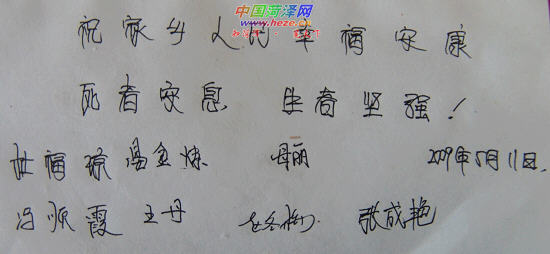 中国菏泽网
www.heze.cn
祝家乡人们幸福安康
死者安息 生者坚强！
杜福琼 温金炼 母丽 2009年5月11日.
冯顺霞 王丹 张成艳